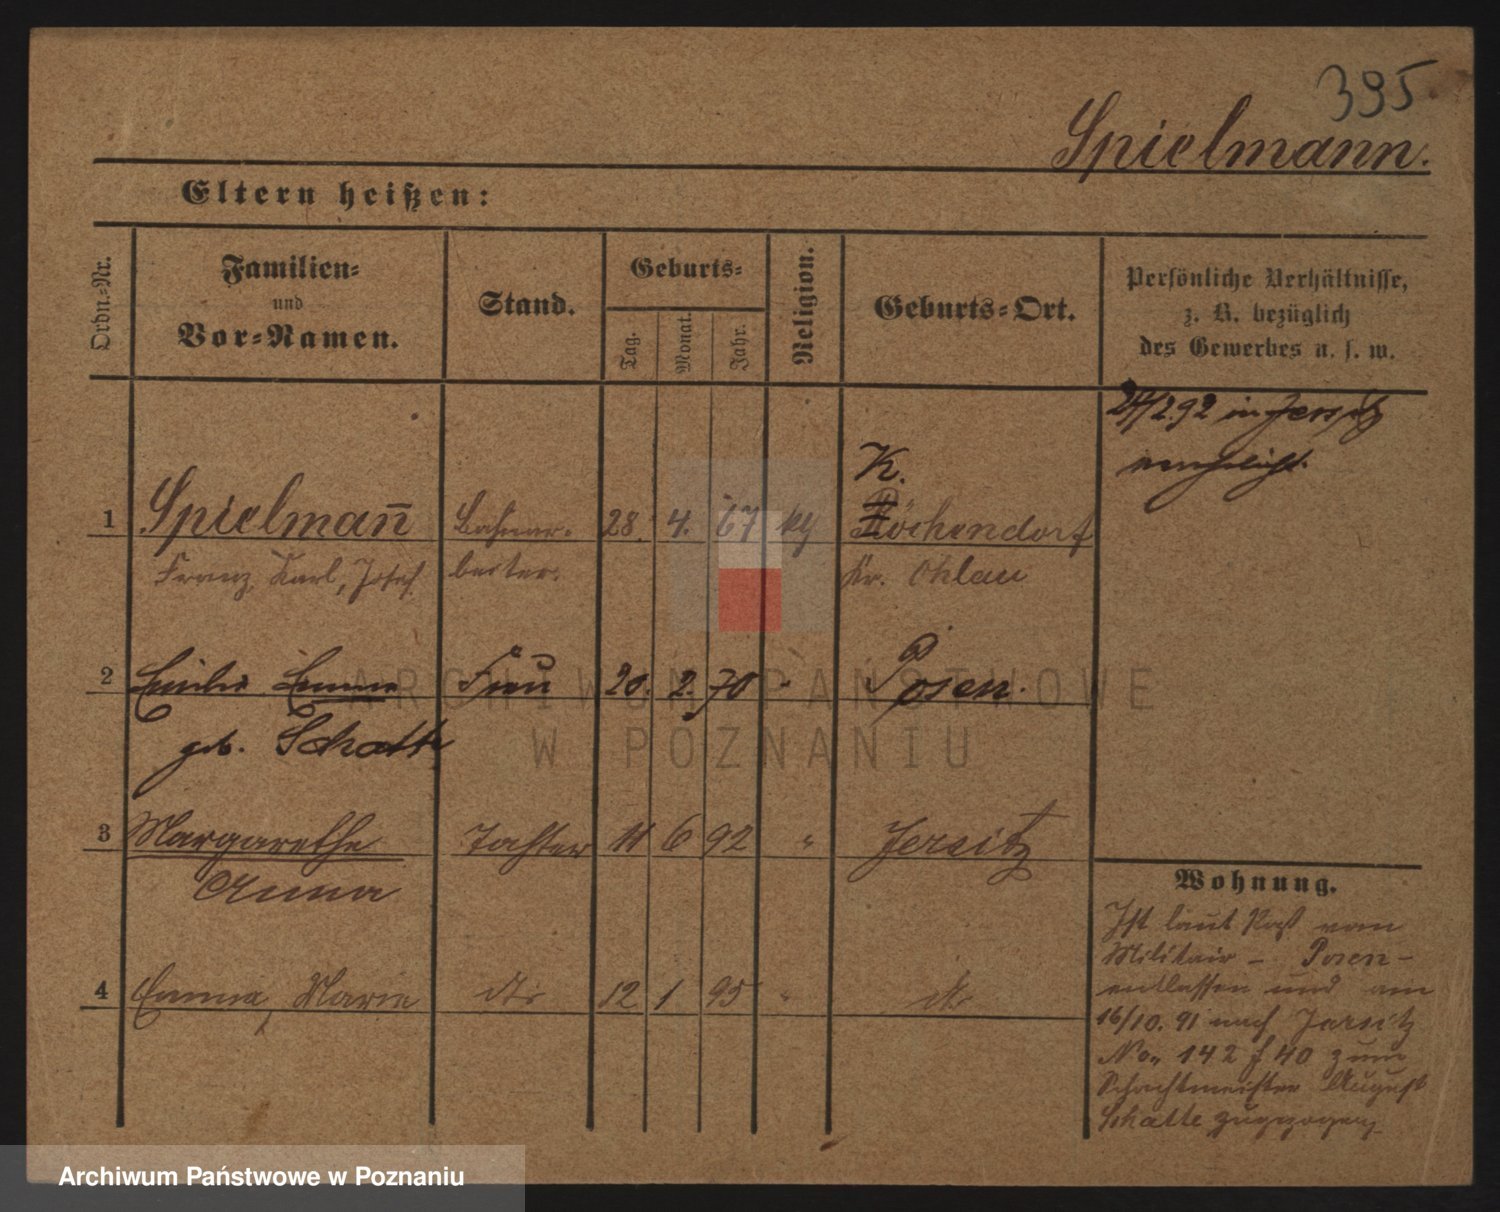 395
Spielmann.
Eltern heißen:
Ordn.-Nr.
Familien-
und
Vor-Namen.
Stand.
Geburts-
Tag.
Monat.
Jahr.
Religion.
Geburts-Ort.
Persönliche Verhältnisse,
z. B. bezüglich
des Gewerbes u. s. w.
24/2 92 in Jersitz
verehelicht.
K.
1 Spielman̅ Bahnar- 28. 4. 67 kth Röckendorf
Franz, Karl, Josef. beiter. Kr. Ohlau
2 Emilie Emma Frau 20. 2. 70 " Posen.
geb. Schatte
3 Margarethe Tochter 11 6 92 " Jersitz
Anna
4 Emma, Marie dto 12 1 95 " do
Wohnung.
Ist laut Paß vom
Militair - Posen -
entlassen und am
16/10. 91 nach Jersitz
No. 142 f 40 zum
Schachtmeister August
Schatte zugezogen
ARCHIWUM PAŃSTWOWE
W POZNANIU
Archiwum Państwowe w Poznaniu